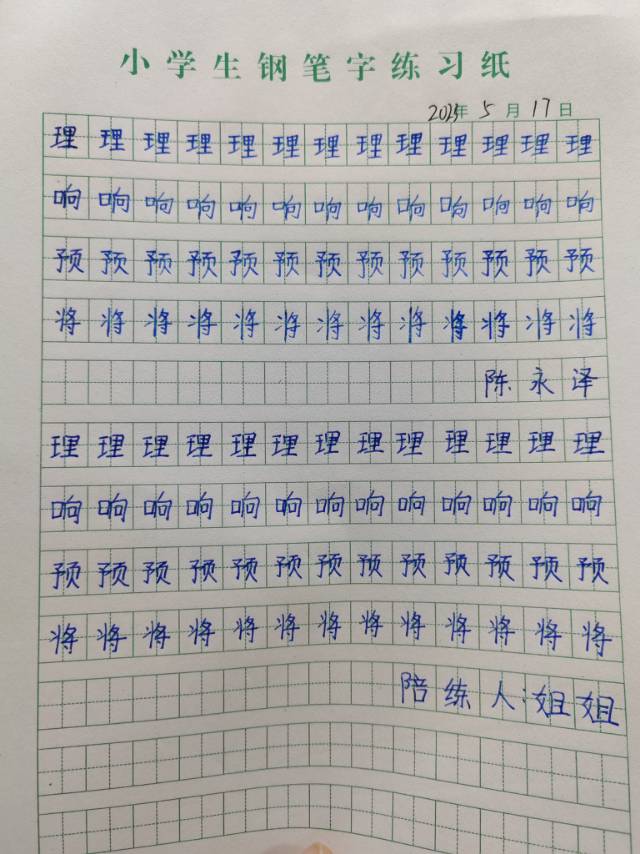 小学生钢笔字练习纸
2025年5月17日
理理理理理理理理理理理理理
响响响响响响响响响响响响响
预预预预预预预预预预预预预
将将将将将将将将将将将将将
陈永泽
理理理理理理理理理理理理理
响响响响响响响响响响响响响
预预预预预预预预预预预预预
将将将将将将将将将将将将将
陪练人:姐姐